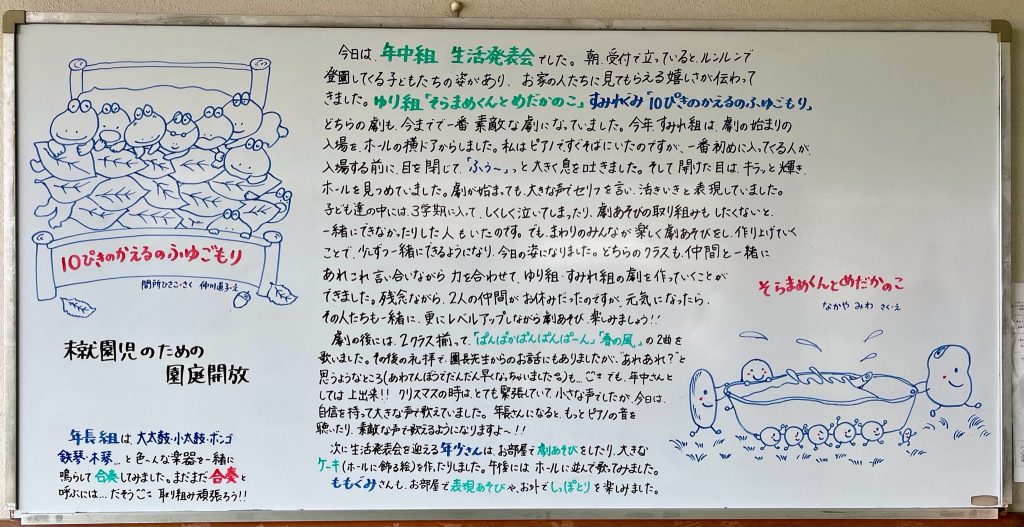 今日は、年中組 生活発表会でした。朝、受付で立っていると、ルンルンで
登園してくる子どもたちの姿があり、お家の人たちに見てもらえる嬉しさが伝わって
きました。ゆり組「そらまめくんとめだかのこ」すみれぐみ「10ぴきのかえるのふゆごもり」
どちらの劇も、今までで一番素敵な劇になっていました。今年、すみれ組は、劇の始まりの
入場を、ホールの横ドアからしました。私はピアノですぐそばにいたのですが、一番初めに入ってくる人が、
入場する前に、目を閉じて、「ふぅ〜」っと大きく息を吐きました。そして開けた目は、キラッと輝き、
ホールを見つめていました。劇が始まっても、大きな声でセリフを言い、活きいきと表現していました。
子ども達の中には、3学期に入って、しくしく泣いてしまったり、劇あそびの取り組みもしたくないと、
一緒にできなかったりした人もいたのです。でも、まわりのみんなが楽しく劇あそびをし、作り上げていく
ことで、少しずつ一緒にできるようになり、今日の姿になりました。どちらのクラスも、仲間と一緒に
あれこれ言い合いながら力を合わせて、ゆり組・すみれ組の劇を作っていくことが
できました。残念ながら、2人の仲間がお休みだったのですが、元気になったら、
その人たちも一緒に、更にレベルアップしながら劇あそび、楽しみましょう!!
劇の後には、2クラス揃って、「ぱんぱかぱんぱんぱーん」「春の風」の2曲を
歌いました。その後の礼拝で、園長先生からのお話にもありましたが、"あれあれ?"と
思うようなところ(あわてんぼうでだんだん早くなっちゃいました)も…でも、年中さんと
しては上出来!! クリスマスの時は、とても緊張していて、小さな声でしたが、今日は、
自信を持って大きな声で歌えていました。年長さんになると、もっとピアノの音を
聴いたり、素敵な声で歌えるようになりますよ〜!!
次に生活発表会を迎える年少さんは、お部屋で劇あそびをしたり、大きな
ケーキ(ホールに飾る絵)を作ったりしました。午後には、ホールに並んで歌ってみました。
ももぐみさんも、お部屋で表現あそびや、お外でしっぽとりを楽しみました。
10ぴきのかえるのふゆごもり
間所ひさこ・さく 仲川道子・え
未就園児のための
園庭開放
年長組は、大太鼓・小太鼓・ボンゴ
鉄琴・木琴…と色〜んな楽器を一緒に
鳴らして合奏してみました。まだまだ合奏と
呼ぶには…だそう 取り組み頑張ろう!!
そらまめくんとめだかのこ
なかやみわ さく・え